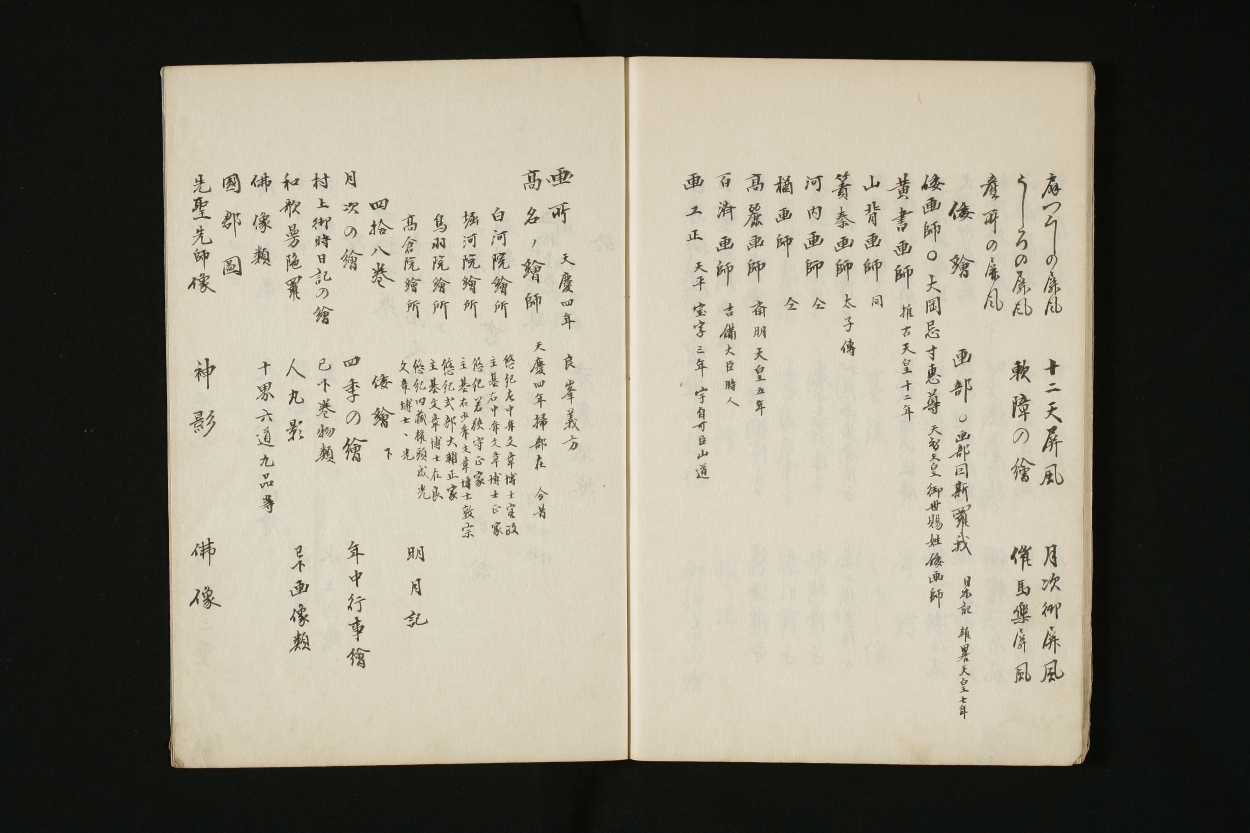 十二天屏風 月次御屏風
うしろの屏風 軟障の繪 催馬樂屏風
産所の屏風
倭繪 画部 ○画部因斯羅我 日本記 雄畧天皇七年
倭画師○大岡忌寸恵尊 天皇御世賜姓倭画師
黄書画師 推古天皇十二年
山背画師 同
簀秦画師 太子傳
河内画師 仝
楢画師 仝
高麗画師 斉明天皇五年
百濟画師 吉備大臣時人
画工正 天平宝字三年
画所 天慶四年 良峯義方
高名ノ繪師 天慶四年掃部在 今昔
白河院繪所 悠紀左中弁文章博士実政
主基右中弁文章博士正家
堀河院繪所 悠紀若狭守正家
主基右少弁文章博士敦宗
鳥羽院繪所 悠紀式部大輔正家
主基文章博士在良
高倉院繪所 悠紀内蔵権頭成光
文章博士 光 明月記
四拾八巻 倭繪 下
月次の繪 四季の繪 年中行事繪
村上御時日記の繪 已下巻物類
和歌曼陀羅 人丸影 已下画像類
佛像類 十界六道九品等
國郡圖
先聖先師像 神影 佛像